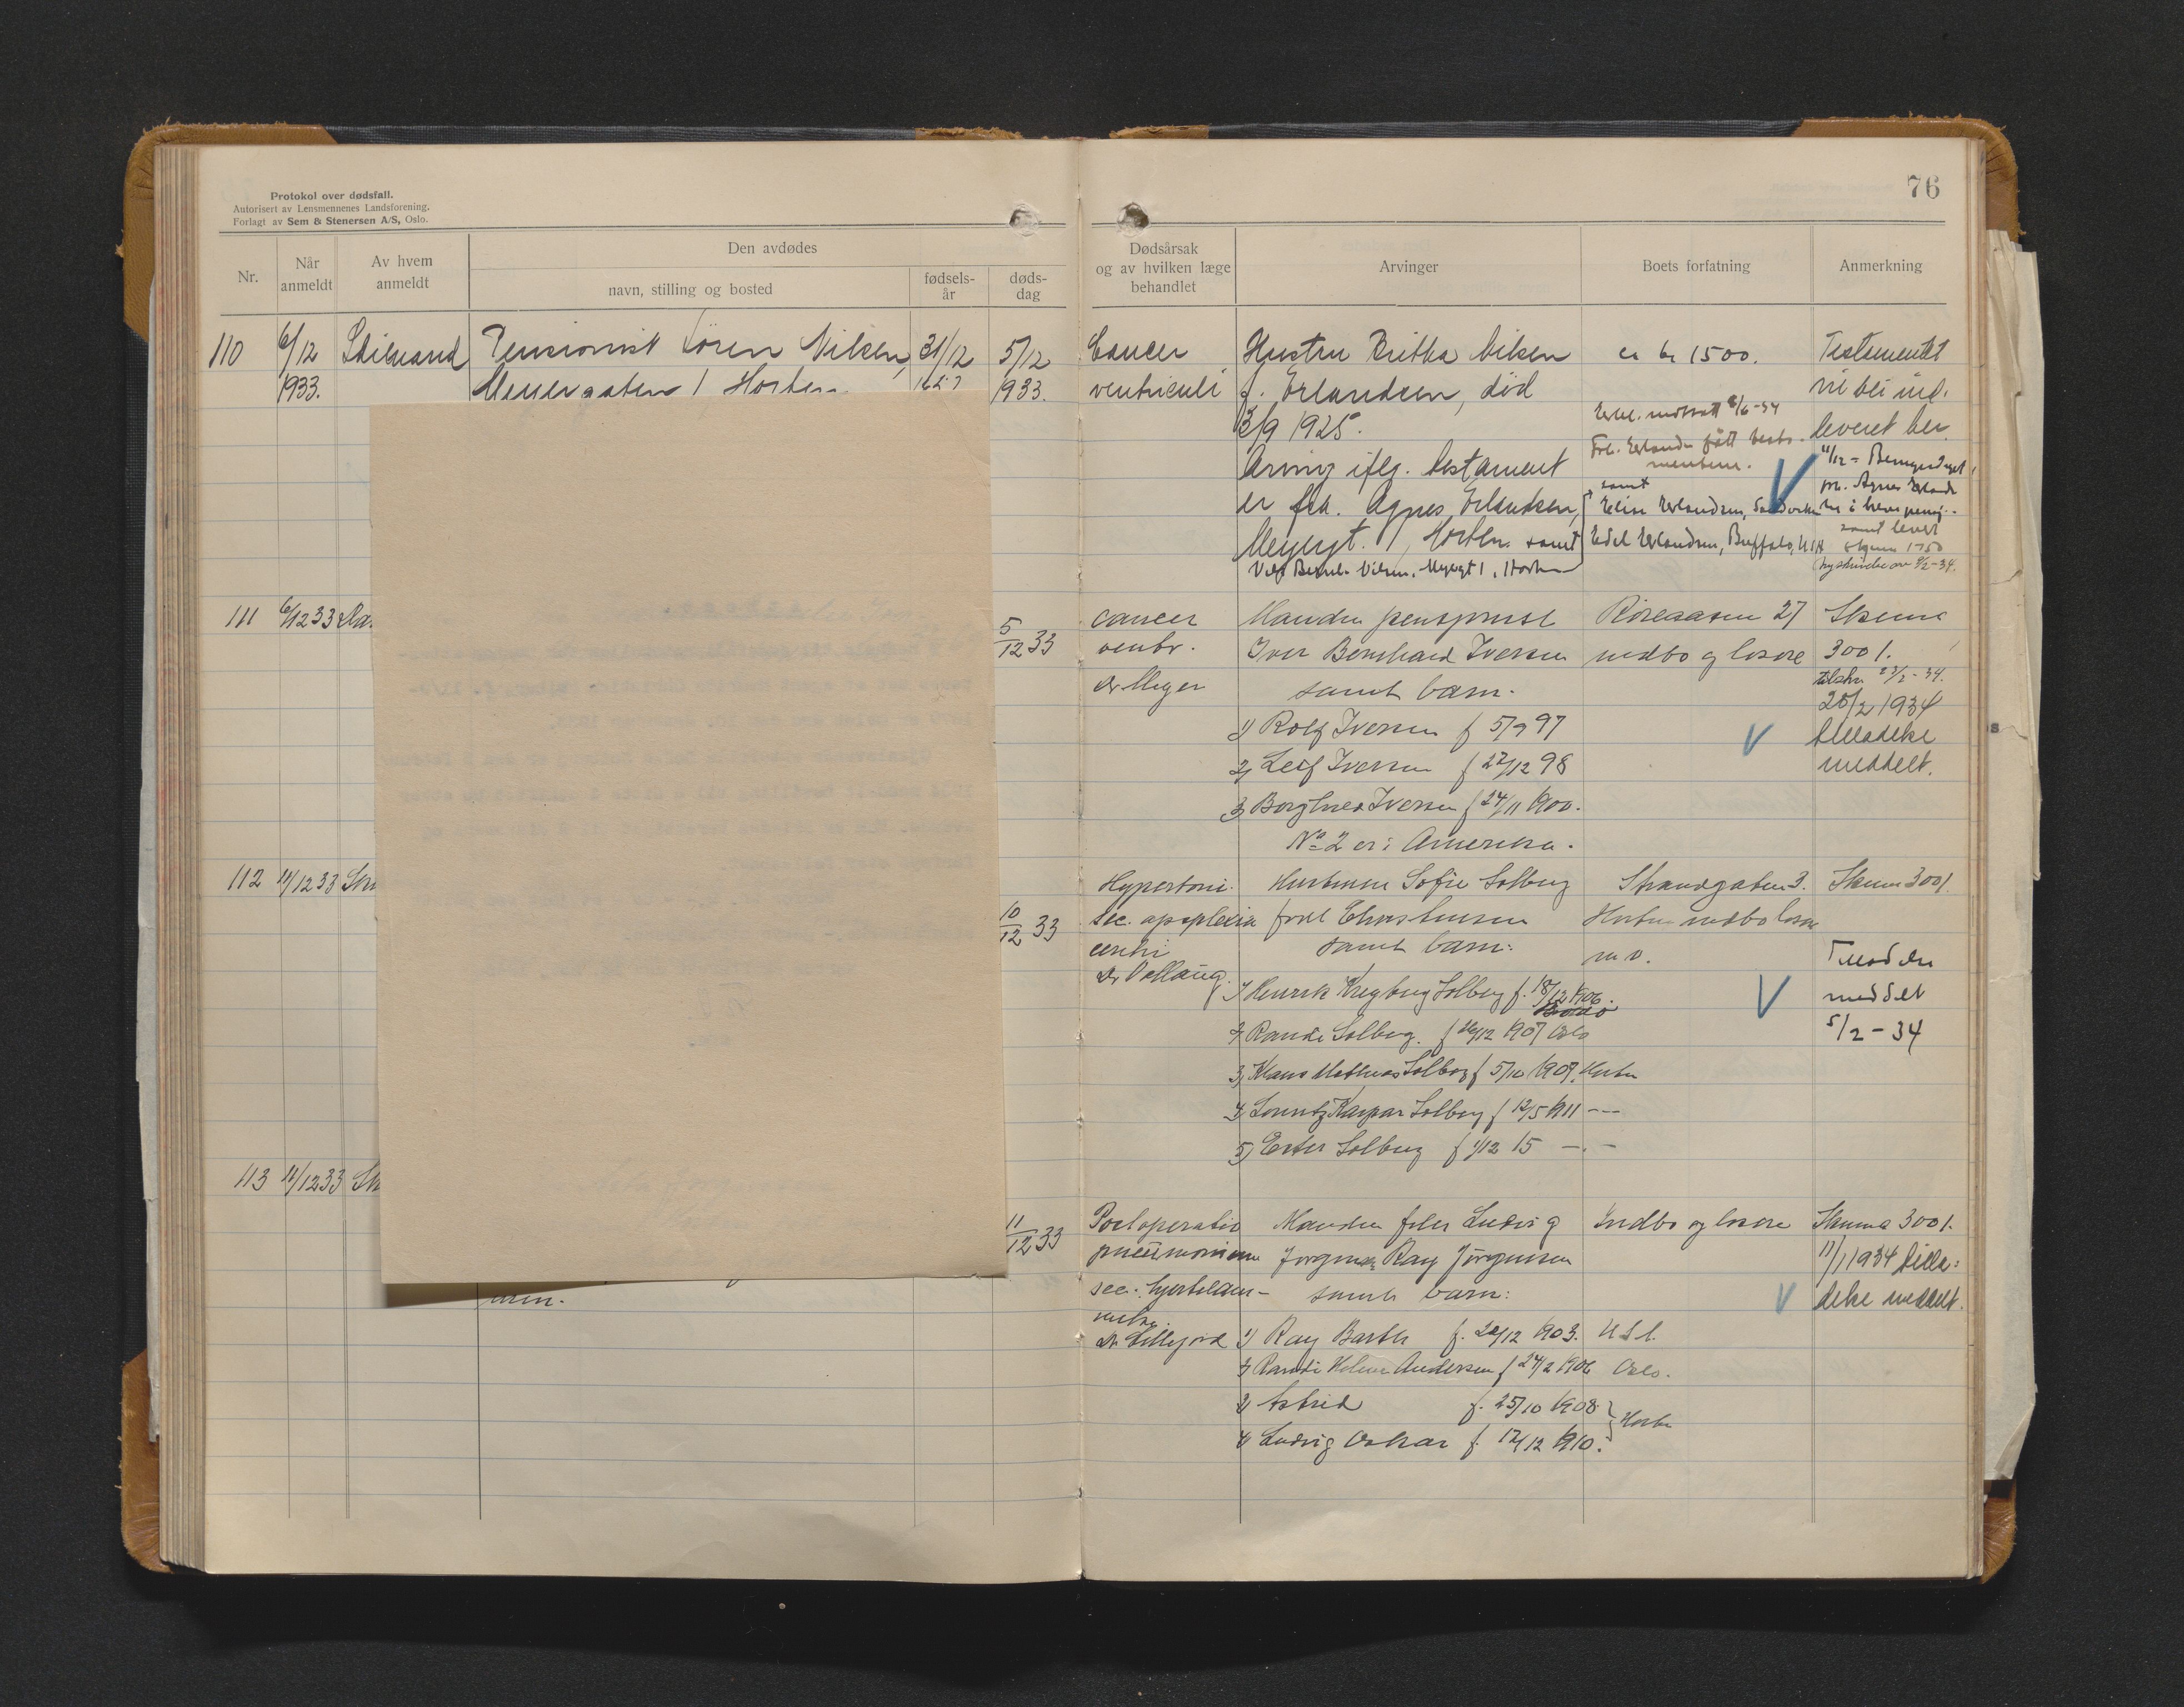 Protokol over dødsfall.
Autorisert av Lensmennenes Landsforening.
Forlagt av Sem & Stenersen A/S, Oslo.
76
Nr.
Når anmeldt
Av hvem anmeldt
Den avdødes
navn, stilling og bosted
fødsels-år
døds-dag
Dødsårsak og av hvilken læge behandlet
Arvinger
Boets forfatning
Anmerkning
110 6/12 1933.
Pensionist Sören Nilsen, 31/12
Meyersgaten 1 Horten
5/12 1933.
Cancer
ventriculi
Hustru Britha Nilsen
f. Erlandsen, död
3/9 1925.
Arving iflg. testament
er frk. Agnes Erlandsen,
Meyergt. 1, Horten. samt
Nilsen, Meyergt 1, Horten
ca kr 1500.
6/6-34
Frk. Erlandsen fått
samt
Elise Erlandsen,
Edel Erlandsen, Buffalo, USA
Testamentet
vil bli ind.
leveret her.
11/12 -
frk. Agnes
samt levert
Skjema 1750
9/2-34.
111 6/12 33
5/12 33
cancer
ventr.
Dr Meyer
Manden
Iver Bernhard Iversen
samt barn.
1) Rolf Iversen f 5/9 97
2) Leif Iversen f 22/12 98
3) Iversen f 24/11 1900.
No 2 er i Amerika.
Röreåsen 27
indbo og lösöre
Skema
3001.
23/2-34.
28/2 1934
tilladelse
meddelt.
112 11/12 33
10/12 33
Hypertoni.
sec. apoplexia
cerebri
Hustruen Sofie Solberg
född Christensen
samt barn:
1) Henrik Solberg f. 18/12 1906.
2) Randi Solberg. f 26/12 1907 Oslo
3) Klaus Mathias Solberg f 5/10 1909. Horten
4) Lorentz Kaspar Solberg f 12/5 1911 - - -
5) Ester Solberg f 1/12 15 - . -
Strandgaten 3.
Horten indbo lösöre
m. v.
Skema 3001.
Tilladelse
meddelt
5/2 - 34
113 11/12 33
11/12 33
Postoperativ
pneumonien
sec. hjertelam-
melse.
Dr Lillejord
Manden filer Ludvig
Jörgen Ray Jörgensen
samt barn:
1) Ray Barth f. 20/12 1903. USA.
2) Randi Helene Andersen f 24/2 1906 Oslo.
3) Astrid f. 25/10 1908
4) Ludvig Oskar f. 12/12 1910.
Horten
Indbo og lösöre
Skema 3001.
11/1 1934 tilla:
delse meddelt.